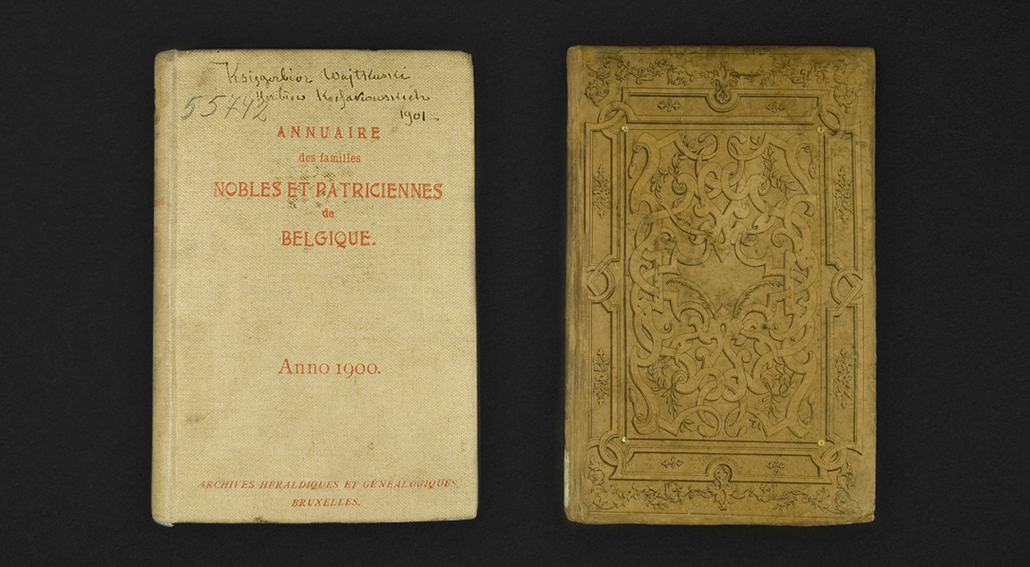 Księgozbior Wojtkuszki
55742
Hrabiów Kossakowskich
1901
ANNUAIRE
des familles
NOBLES ET PATRICIENNES
de
BELGIQUE.
Anno 1900.
ARCHIVES HÉRALDIQUES ET GÉNÉALOGIQUES,
BRUXELLES.